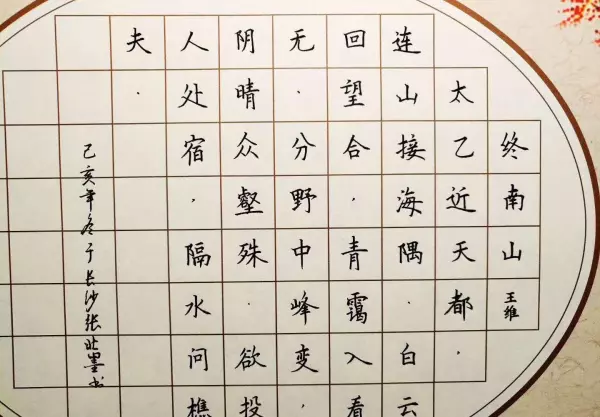 终南山 王维
太乙近天都.
连山接海隅.白云
回望合,青霭入看
无.分野中峰变.
阴晴众壑殊.欲投
人处宿,隔水问樵
夫.
己亥年冬于长沙张墨书